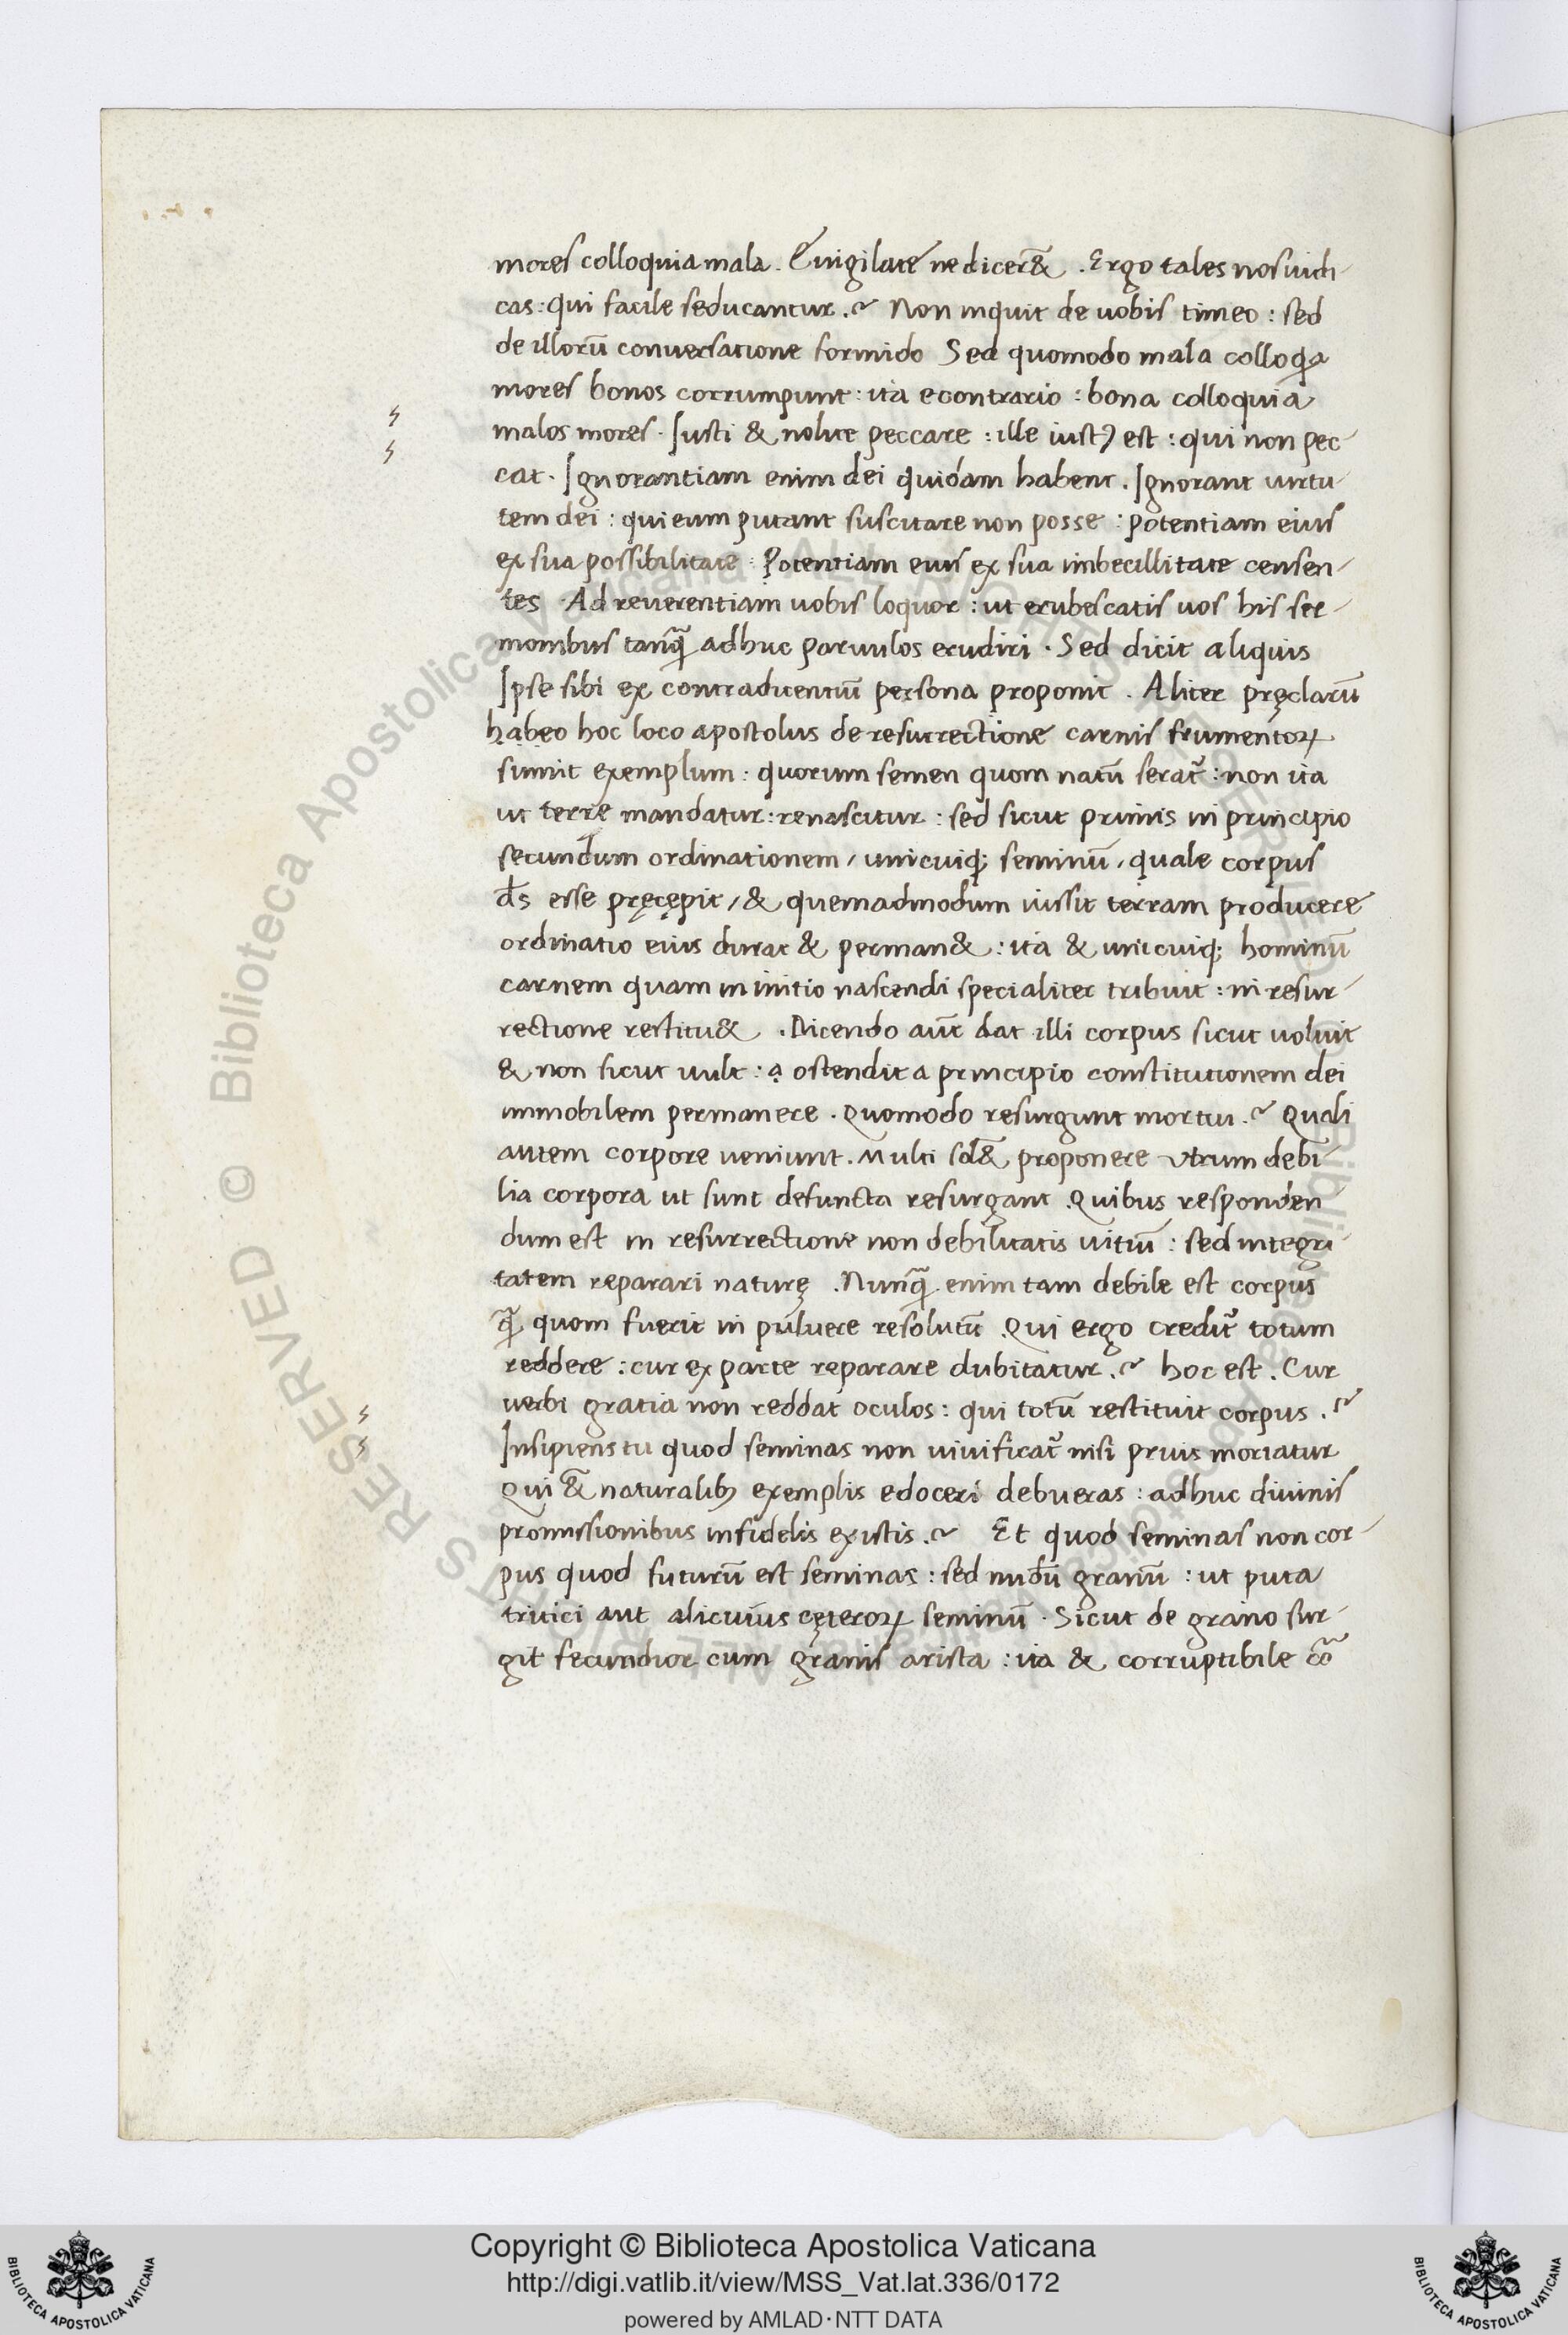 mores colloquia mala. Euigilate ne diceret&. Ergo tales nos iudi-
cas: qui facile seducantur.? Non inquit de uobis timeo: sed
de illorū conuersatione formido Sed quomodo mala colloq̄a
mores bonos corrumpunt: ita econtrario: bona colloquia
malos mores. Iusti & nolite peccare: ille iustꝰ est: qui non pec-
cat. Ignorantiam enim dei quidam habent. Ignorant uirtu-
tem dei: qui eum putant suscitare non posse: potentiam eius
ex sua possibilitate: Potentiam eius ex sua imbecillitate censen-
tes. Ad reuerentiam uobis loquor: ut erubescatis uos his ser-
monibus tanꝗ̄ adhuc paruulos erudiri. Sed dicit aliquis
Ipse sibi ex contradicentiū persona proponit. Aliter pręclarū
habeo hoc loco apostolus de resurrectione carnis frumentoꝝ
sumit exemplum: quorum semen quom natū serat᷑: non ita
ut terre mandatur: renascitur: sed sicut primis in principio
secundum ordinationem / unicuiq; seminū / quale corpus
d̄s esse pręcępit / & quemadmodum iussit terram producere
ordinatio eius durat & perman&: ita & unicuiq; hominū
carnem quam in initio nascendi specialiter tribuit: in resur-
rectione restitu&. Dicendo aūt dat illi corpus sicut uoluit
& non sicut uult: a ostendit a principio constitutionem dei
immobilem permanere. Quomodo resurgunt mortui.? Quali
autem corpore ueniunt. Multi sol& proponere utrum debi-
lia corpora ut sunt defuncta resurgant. Quibus responden
dum est in resurrectione non debilitatis uitiū: sed integri-
tatem reparari naturę. Nunꝗ̄ enim tam debile est corpus
ꝗ̄ quom fuerit in puluere resolutū. Qui ergo credit᷑ totum
reddere: cur ex parte reparare dubitatur.? hoc est. Cur
uerbi gratia non reddat oculos: qui totū restituit corpus.?
Insipiens tu quod seminas non uiuificat᷑ nisi prius moriatur
Qui &̄ naturalibꝫ exemplis edoceri debueras: adhuc diuinis
promissionibus infidelis existis.? Et quod seminas non cor-
pus quod futurū est seminas: sed nudū granū: ut puta
tritici aut alicuius cęteroꝝ seminū. Sicut de grano sur-
git fecundior cum granis arista: ita & corruptibile cō
Copyright © Biblioteca Apostolica Vaticana
http://digi.vatlib.it/view/MSS_Vat.lat.336/0172
powered by AMLAD·NTT DATA